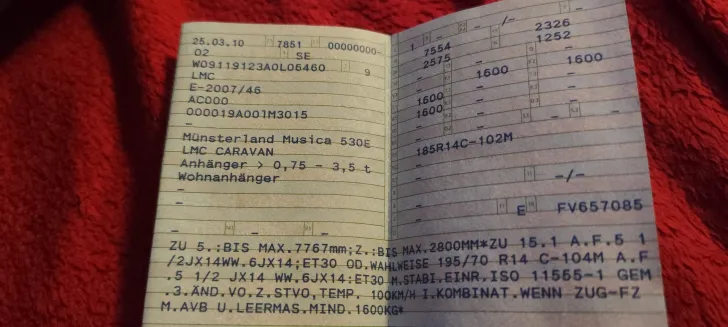 25.03.10 7851 00000000-
02 SE
W09119123A0L05460 9
LMC
E-2007/46
AC000
000019A001M3015
-
Münsterland Musica 530E
LMC CARAVAN
Anhänger > 0,75 - 3,5 t
Wohnanhänger
-
-
- -
1 - -/-
7554 2326
2575 - 1252
- - -
- 1600 1600
1600 - -
1600 - -
- - -
185R14C-102M
-
- -/-
-
E FV657085
ZU 5.:BIS MAX.7767mm;Z.:BIS MAX.2800MM*ZU 15.1 A.F.5 1
/2JX14WW.6JX14;ET30 OD.WAHLWEISE 195/70 R14 C-104M A.F
.5 1/2 JX14 WW.6JX14:ET30 M.STABI.EINR.ISO 11555-1 GEM
.3.ÄND.VO.Z.STVO,TEMP. 100KM/H I.KOMBINAT.WENN ZUG-FZ
M.AVB U.LEERMAS.MIND.1600KG*